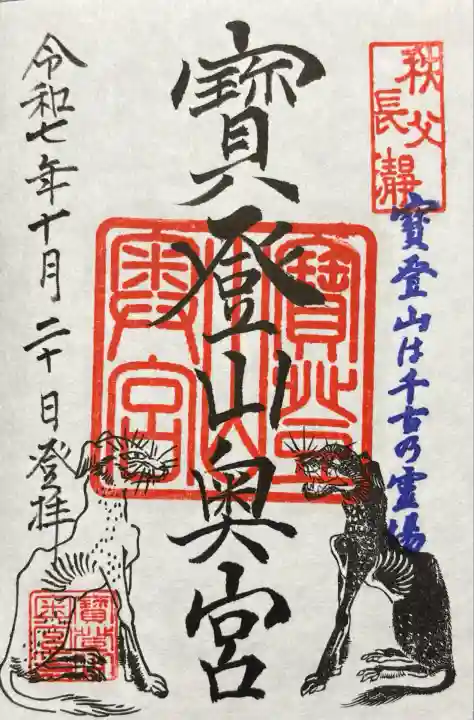 秩父
長瀞
寶登山は千古乃霊場
寶登山奥宮
寶登山
奥宮
令和七年十月二十日登拝